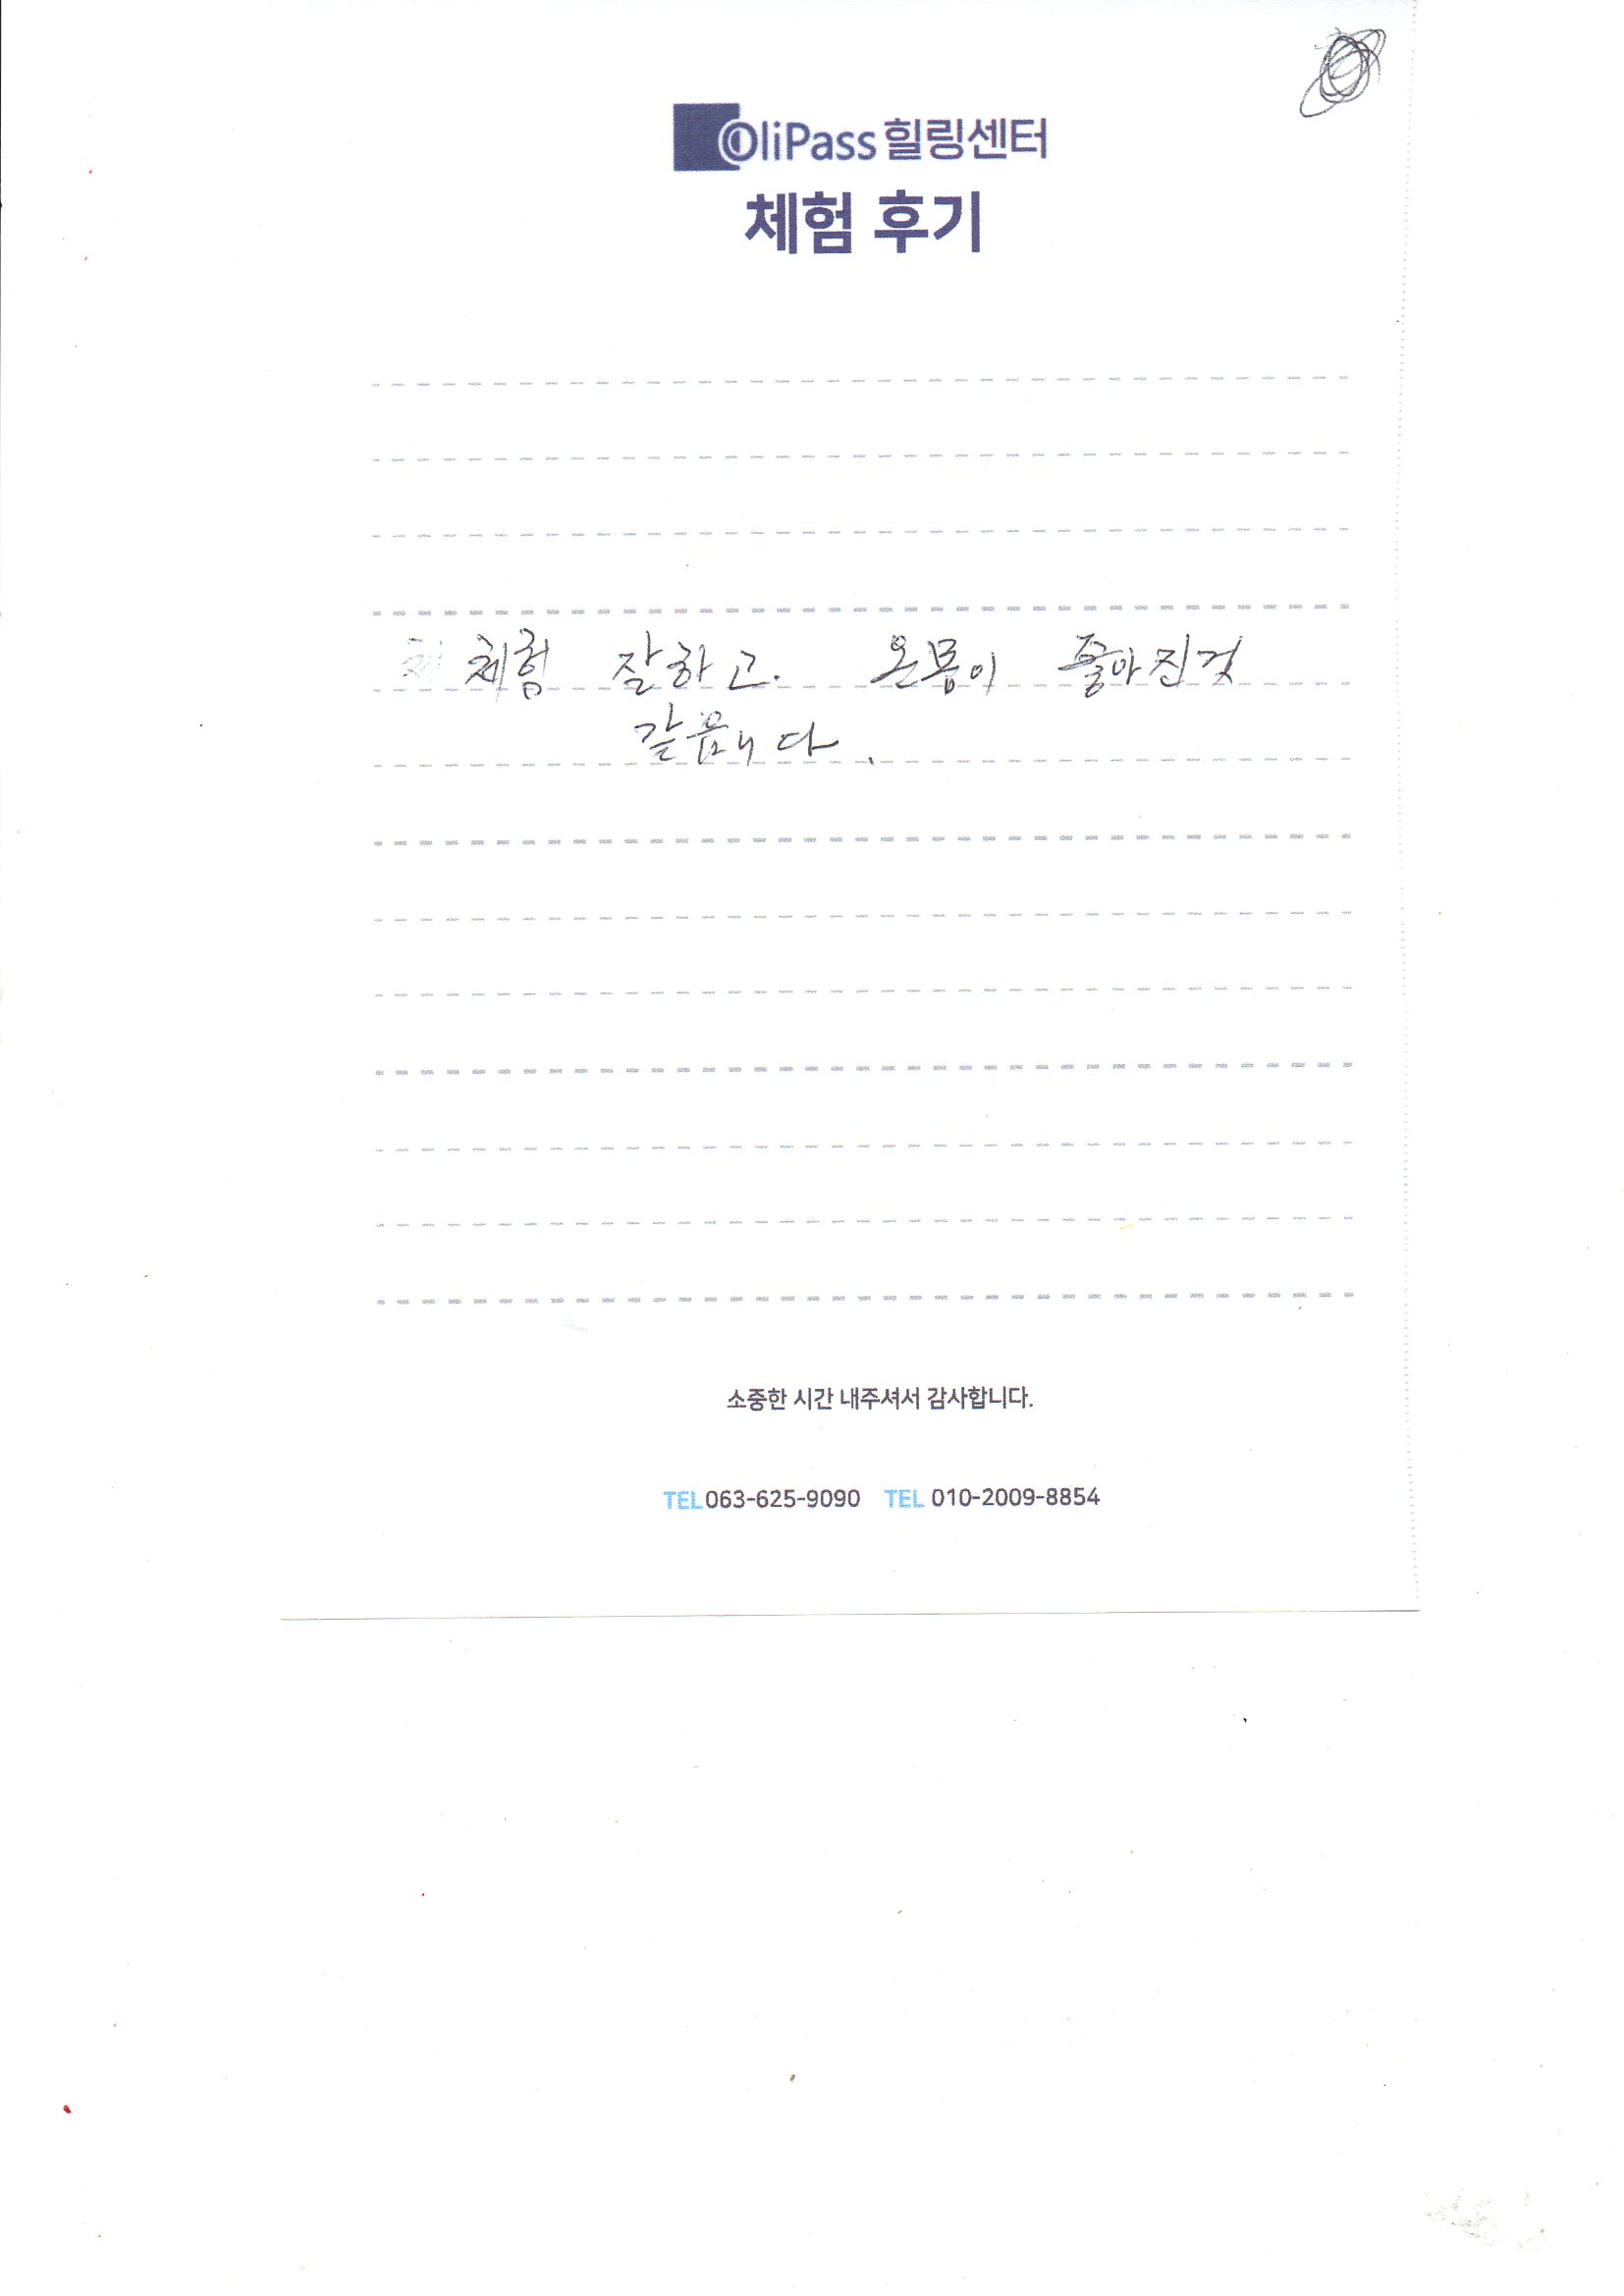 OliPass 힐링센터
체험 후기
체 체험 잘하고. 온몸이 좋아진것
같읍니다.
소중한 시간 내주셔서 감사합니다.
TEL 063-625-9090 TEL 010-2009-8854